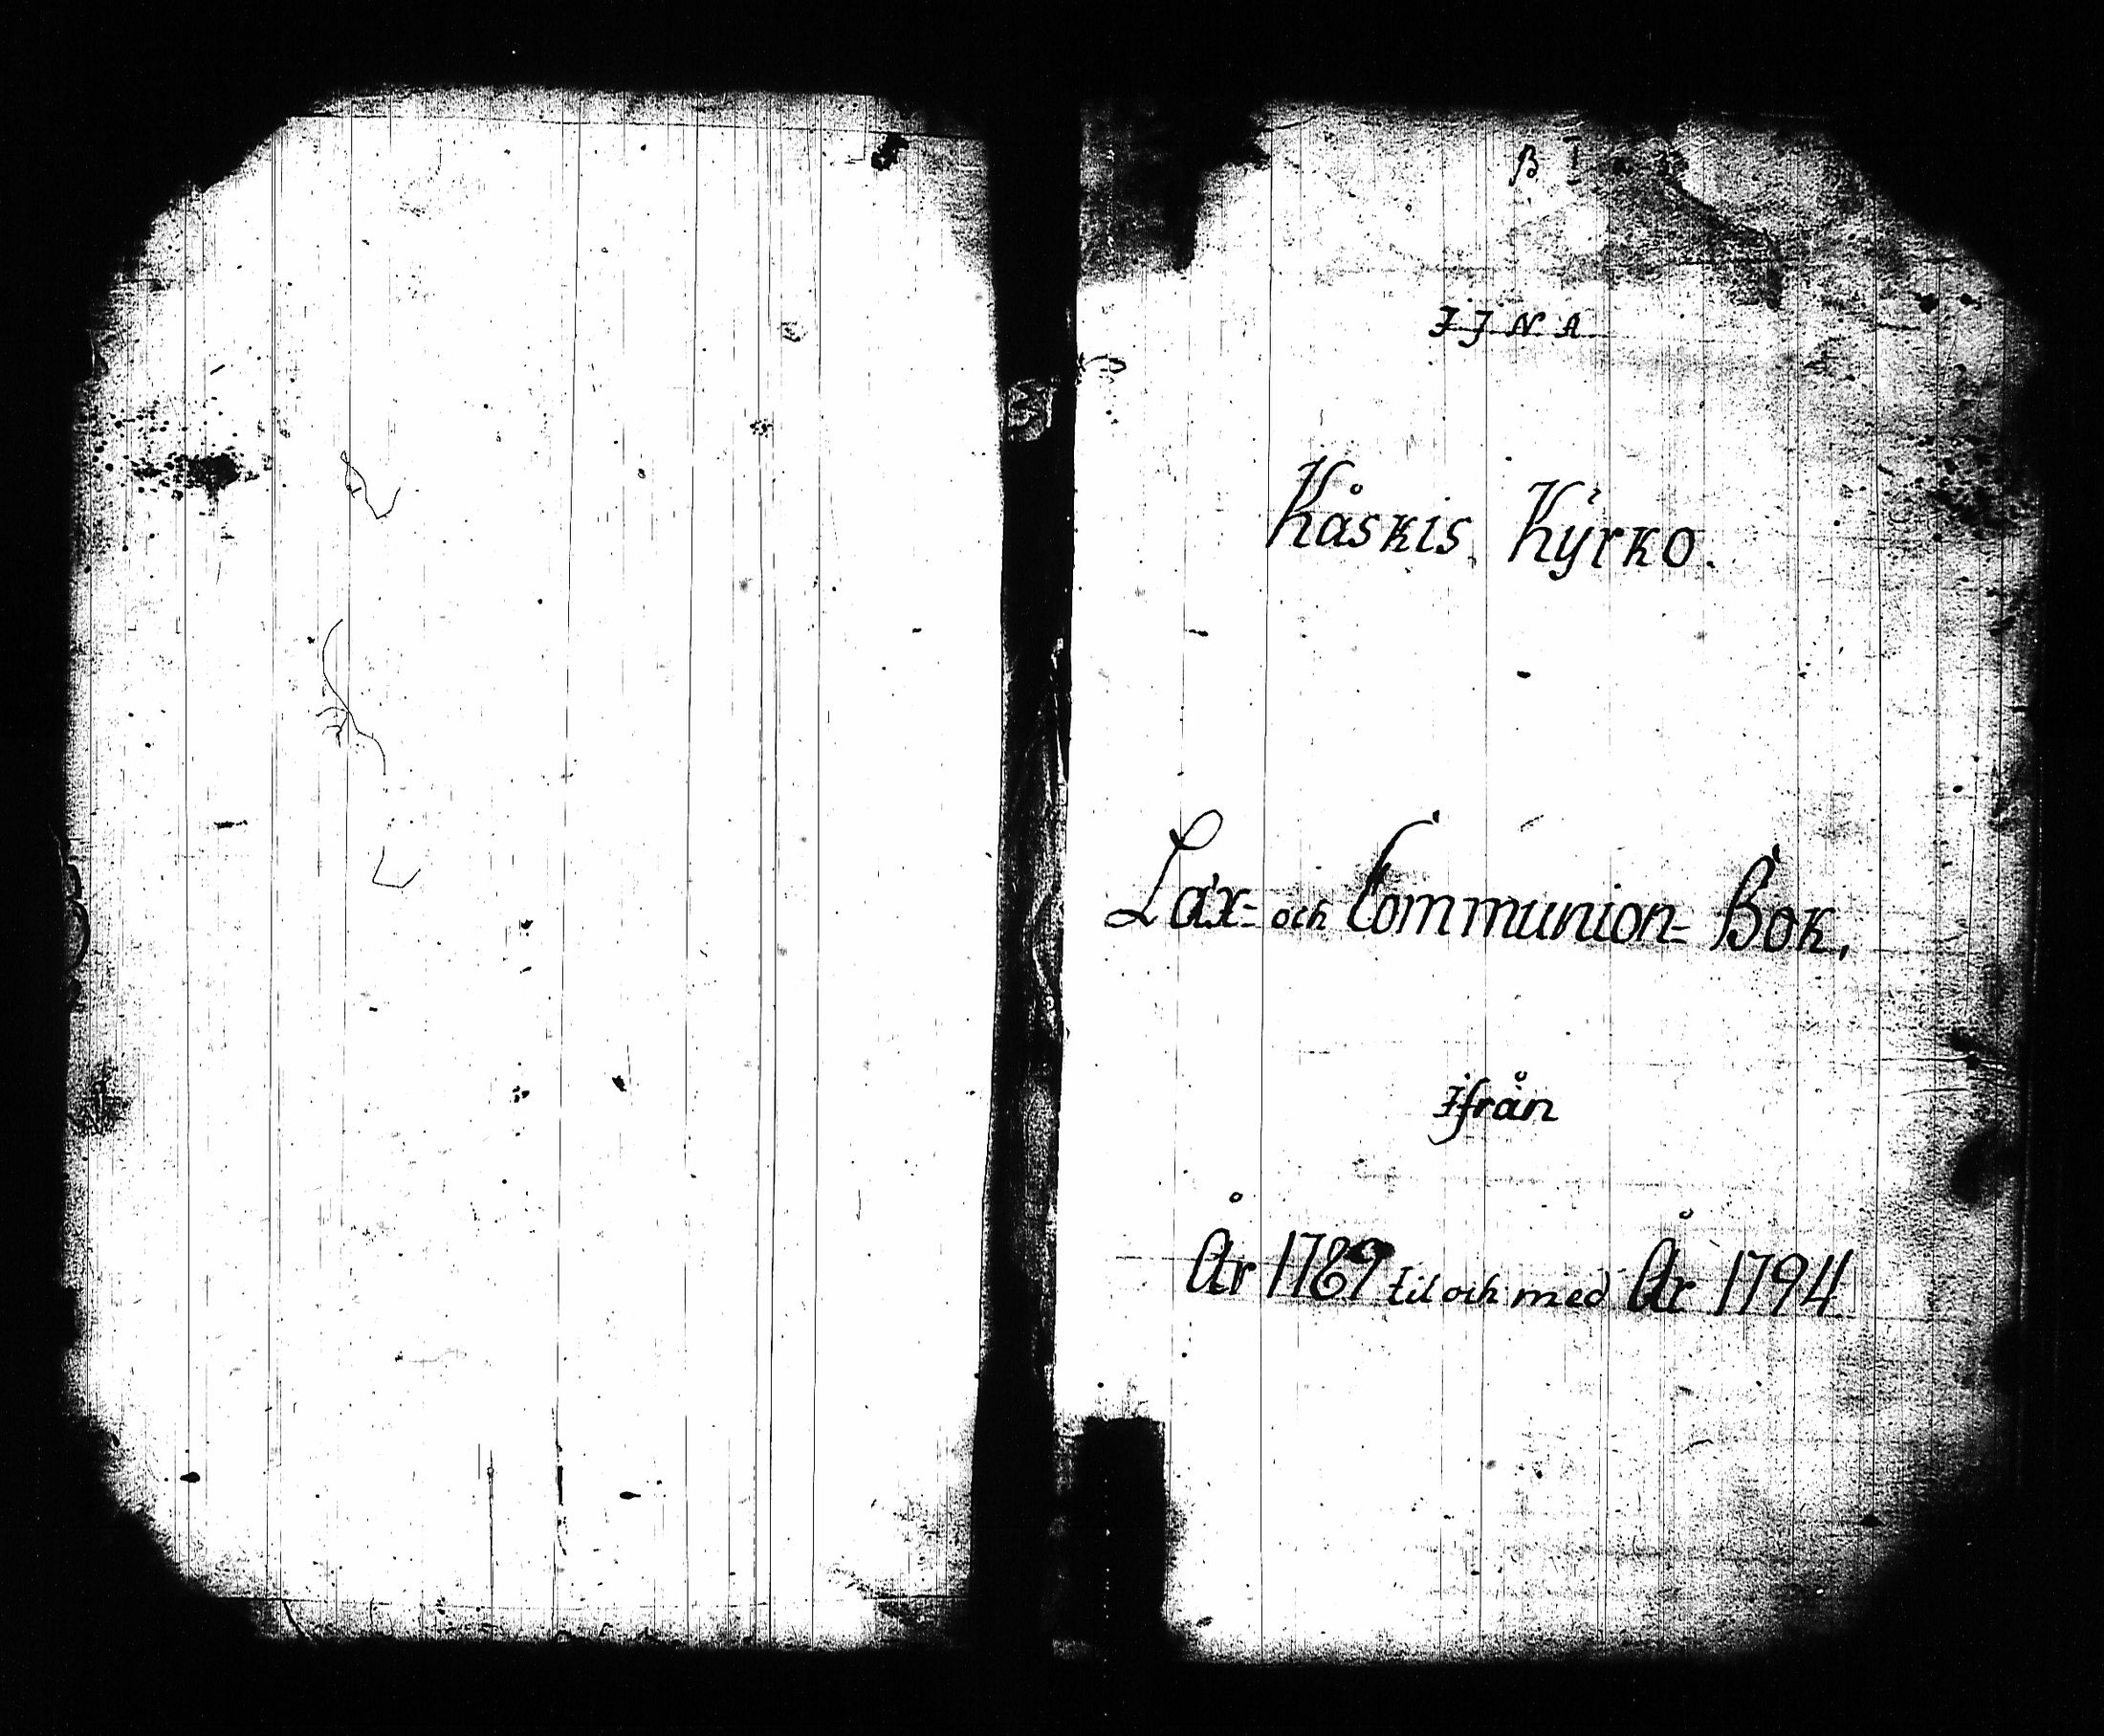 I J N A
Kåskis Kÿrko.
Läx= och Communion= Bok,
Ifrån
År 1789 til och med År 1794